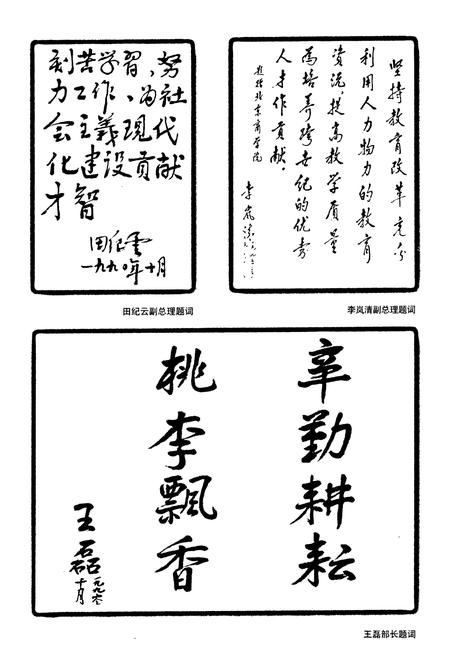 刻苦学習、努
力工作、为社
会主義现代
化建设贡献
才智
田纪云
一九九〇年十月
田纪云副总理题词
坚持教育改革充分
利用人力物力的教育
资源，提高教学质量
为培养跨世纪的优秀
人才作贡献。
题赠北京商学院
李岚清
李岚清副总理题词
辛勤耕耘
桃李飄香
王磊
一九九〇
十月
王磊部长题词